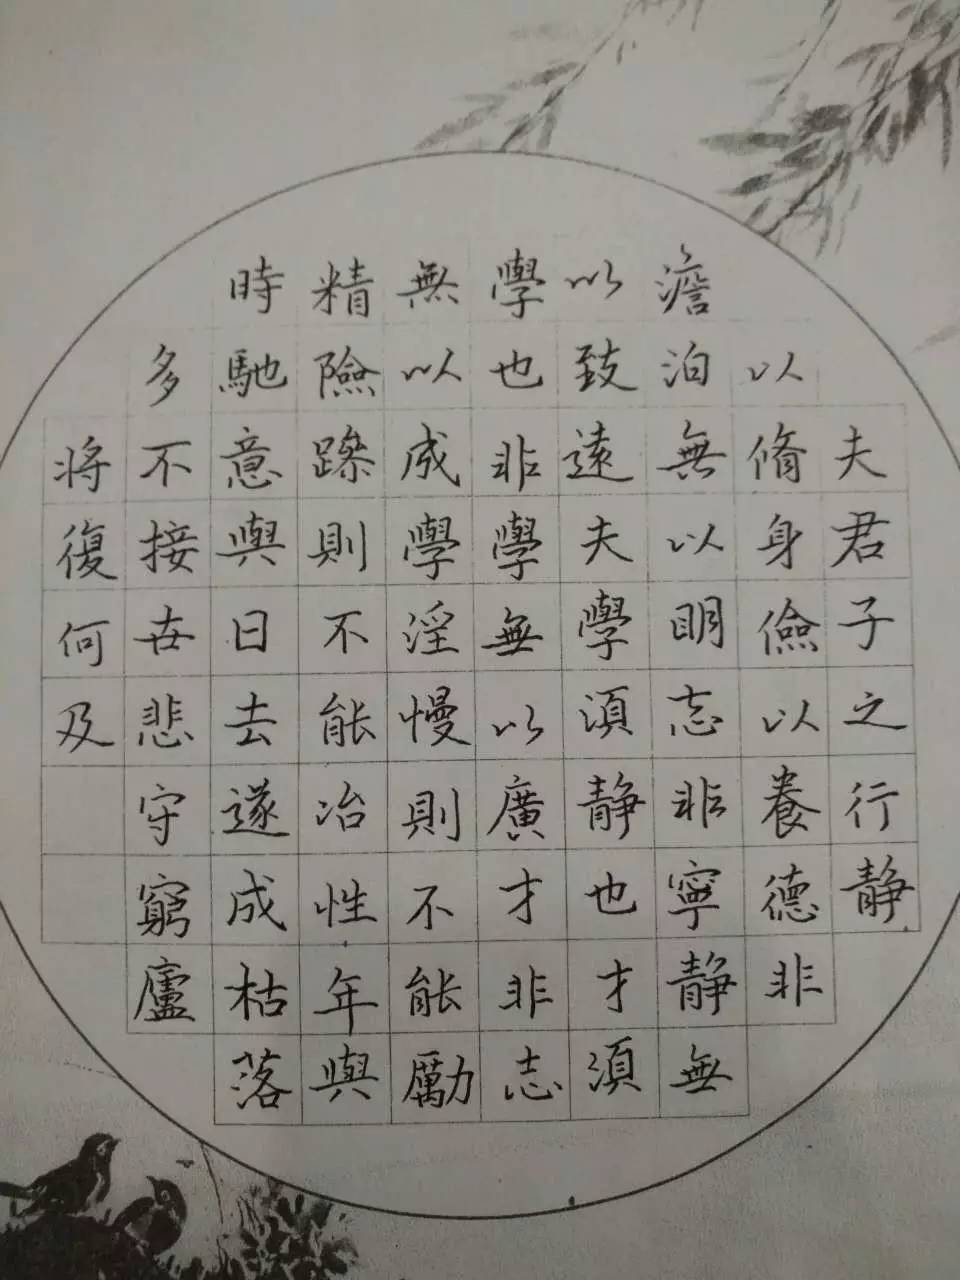 夫君子之行靜
以脩身儉以養德非
澹泊無以明志非寧靜無
以致遠夫學須靜也才須
學也非學無以廣才非志
無以成學淫慢則不能厲力
精險躁則不能冶性年與
時馳意與日去遂成枯落
多不接世悲守窮廬
將復何及